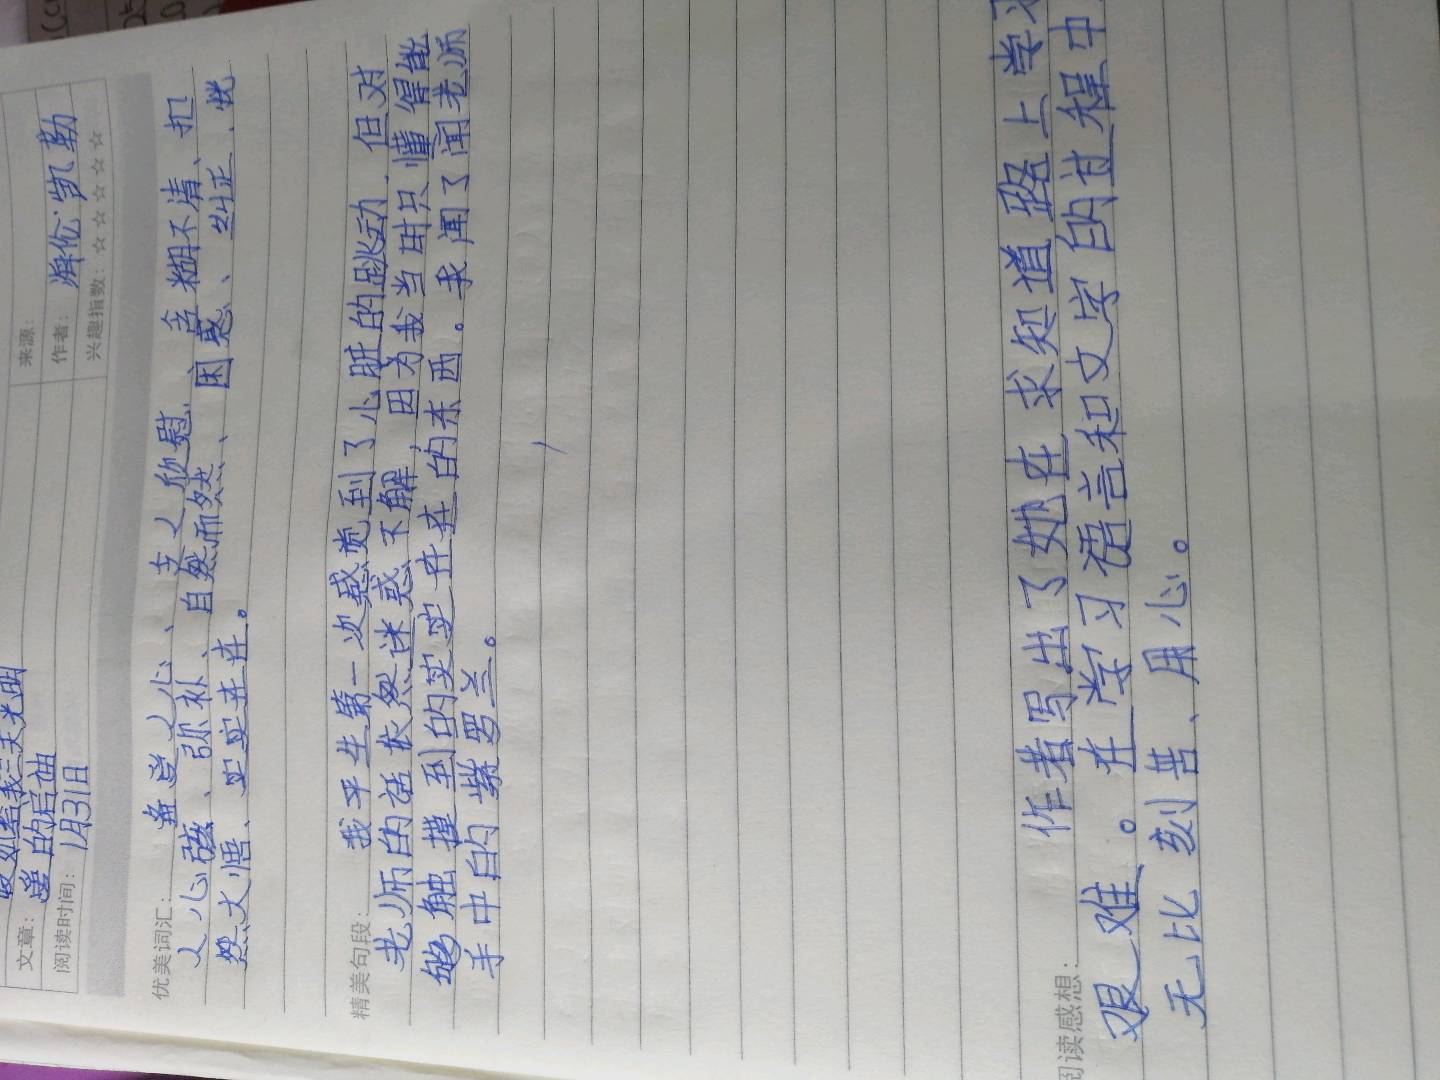 文章：假如给我三天光明
来源：
爱的启迪
作者：海伦·凯勒
阅读时间：1月31日
兴趣指数：☆☆☆☆☆
优美词汇：
善意人心、令人欣慰、含糊不清、扣
人心弦、弥补、自然而然、困惑、纠正、恍
然大悟、实实在在。
精美句段：
我平生第一次感觉到了心脏的跳动，但对
老师的话依然迷惑不解，因为我当时只懂得能
够触摸到的实实在在的东西。我闻了闻老师
手中的紫罗兰。
阅读感想：
作者写出了她在求知道路上学习
艰难。在学习语言和文字的过程中
无比刻苦、用心。